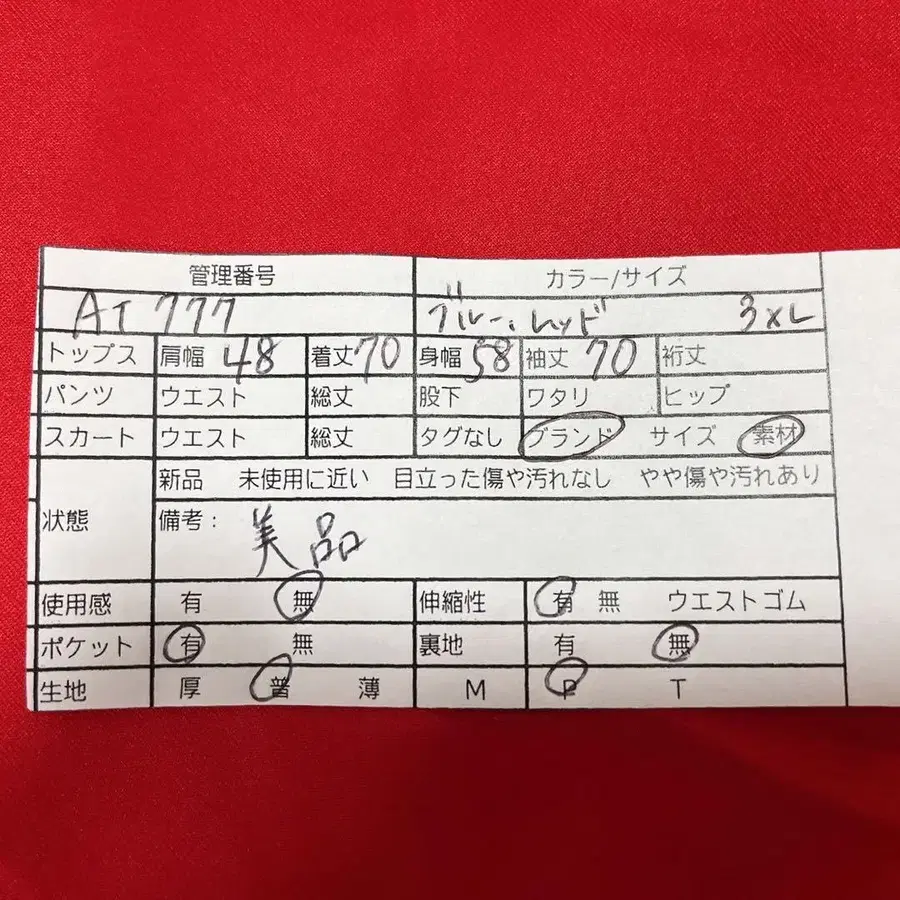 管理番号 カラー/サイズ
AI 777 ブルー、レッド 3XL
トップス 肩幅 48 着丈 70 身幅 58 袖丈 70 裄丈
パンツ ウエスト 総丈 股下 ワタリ ヒップ
スカート ウエスト 総丈 タグなし ブランド サイズ 素材
新品 未使用に近い 目立った傷や汚れなし やや傷や汚れあり
状態 備考: 美品
使用感 有 無 伸縮性 有 無 ウエストゴム
ポケット 有 無 裏地 有 無
生地 厚 普 薄 M P T